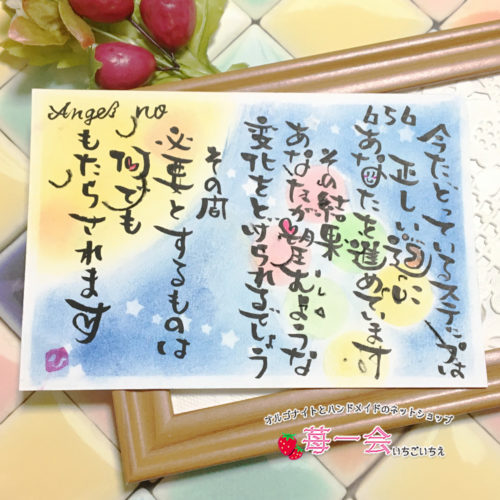 今たどっているステップは
正しい道に
656
あなたを進めています
その結果
あなたが望むような
変化をとげられるでしょう
その間
必要とするものは
何でも
もたらされます
Angel no
オルゴナイトとハンドメイドのネットショップ
苺一会 いちごいちえ